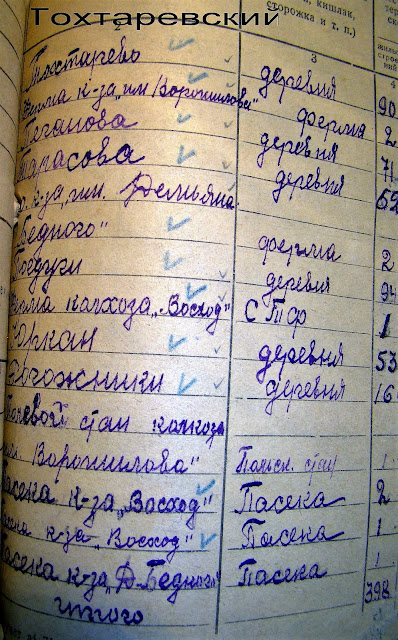 Тохтаревский
кишлак,
сторожка и т. п.)
2 3 4
Тохтарево деревня 90
Ферма к-за „им Ворошилова" ферма 2
Теганова деревня 71
Тарасова деревня 52
к-за „им. Демьяна
Бедного" ферма 2
Поедуги деревня 94
Ферма калхоза „Восход" СТФ 1
Юркан деревня 53
Рогожники деревня 16
Полевой стан калхоза
им. Ворошилова" Польск. стан 1
Пасека к-за „Восход" Пасека 2
Пасека к-за „Восход" Пасека 1
Пасека к-за „Д. Бедного" Пасека 1
итого 398